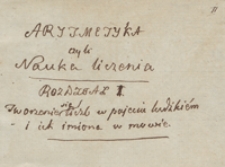 ARYTMETYKA
czyli
Nauka liczenia
ROZDZIAŁ I.
Tworzenie się liczb w pojęciu ludzkiém
- i ich imiona w mowie.